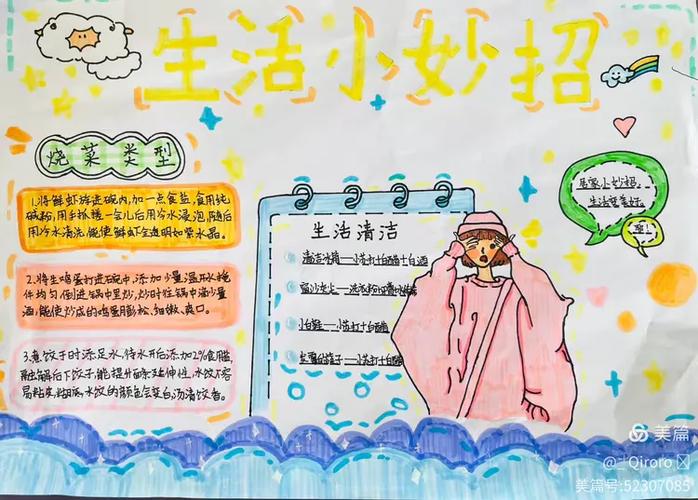 生活小妙招
烧菜类型
1.将鲜虾放进碗内,加一点食盐,食用纯
碱粉,用手抓搓一会儿后用冷水浸泡,随后
用冷水清洗,能使鲜虾全透明如紫水晶。
2.将生鸡蛋打进碗中,添加少量温水搅
拌均匀倒进锅中里炒,炒时往锅中滴少量
酒,能使炒成的鸡蛋膨松,细嫩,爽口。
3.煮饺子时添足水,待水开后添加2%食盐,
融解后下饺子,能提升面条延伸性,水饺不容
易粘皮,糊底,水饺的颜色会变白,汤清饺香。
生活清洁
清洁冰箱——小苏打+白醋+白酒
小白鞋——小苏打+白醋
居家小妙招,
生活更美好。
耶!
美篇
Qiroro
美篇号:52307085